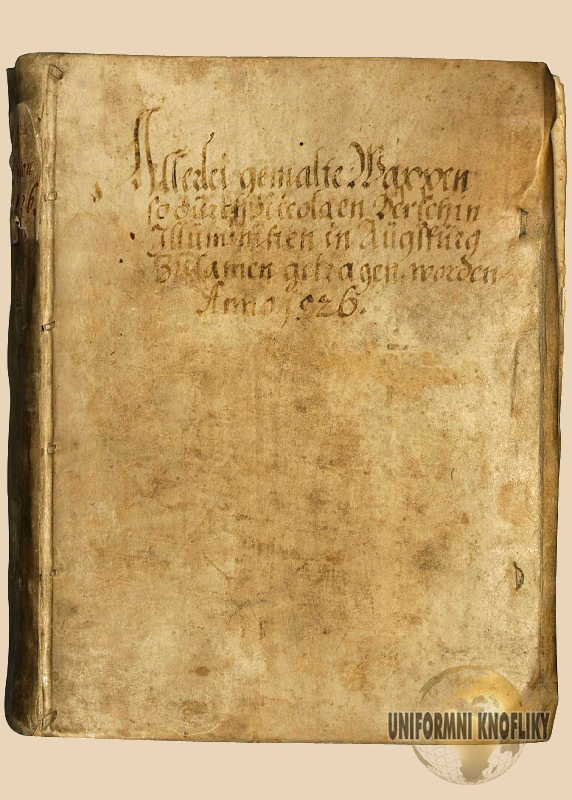 Allerlei gemalte Wappen
so durch Nicolaen Bertschin
Illuministen in Augspurg
Zusamen getragen worden
Anno 1526.
UNIFORMNI KNOFLIKY